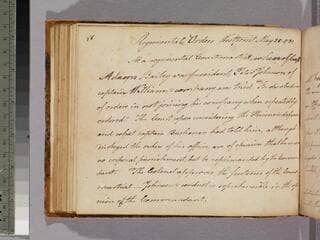 88
Regimental Orders Westpoint May 20 1781
At a regimental Court martial, whereof Capt
Adams Bailey was president, Peter Johnson, of
captain Williams's company, was tried, for disobedience
of orders in not joining his company when repeatedly
ordered. The Court upon considering the
and what captain Buchanan had told him, altho'
he disobeyed the orders of his officer, are of opinion that he
no corporal punishment, but be reprimanded by the Comman-
dant. The Colonel approves the sentence of the Court
martial. Johnson's conduct is reprehensible in the opi-
nion of the Commandant.